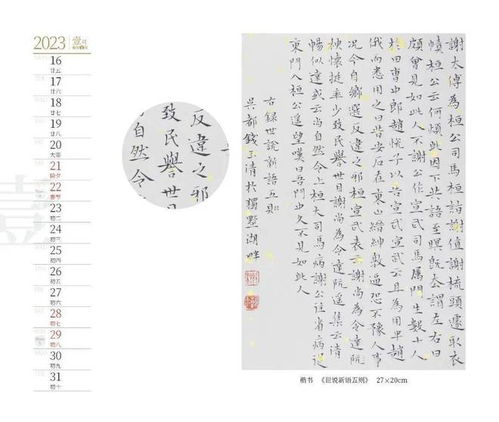 2023
壹月
16
廿五
17
廿六
18
廿七
19
廿八
20
大寒
21
除夕
22
春节
23
初二
24
初三
25
初四
26
初五
27
初六
28
初七
29
初八
30
初九
31
初十
壹
反違之邪
致民譽世目
自然令
謝太傅為桓公司馬桓詣謝值謝梳頭遽取衣
幘桓公云何煩此因下共語至暝既去謂左右曰
頗曾見如此人不謝公作宣武司馬屬門生數十人
於田曹中郎趙悅子以告宣武宣武云且為用半趙
俄而悉用之曰昔安石在東山縉紳敦逼恐不豫人事
況今自鄉選反違之邪桓宣武表云謝尚神
懷挺率少致民譽世目謝尚為令達阮遙集云清
暢似達或云尚自然令上桓大司馬病謝公往省病從
東門入桓公遙望嘆曰吾門中久不見如此人
右錄世說新語五則
吳郡錢玉清於獨墅湖畔
楷书 《世说新语五则》 27×20cm